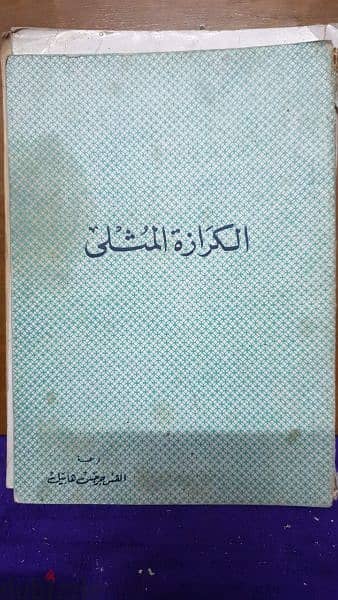 الكرازة المثلى
القس جرجس هابيل